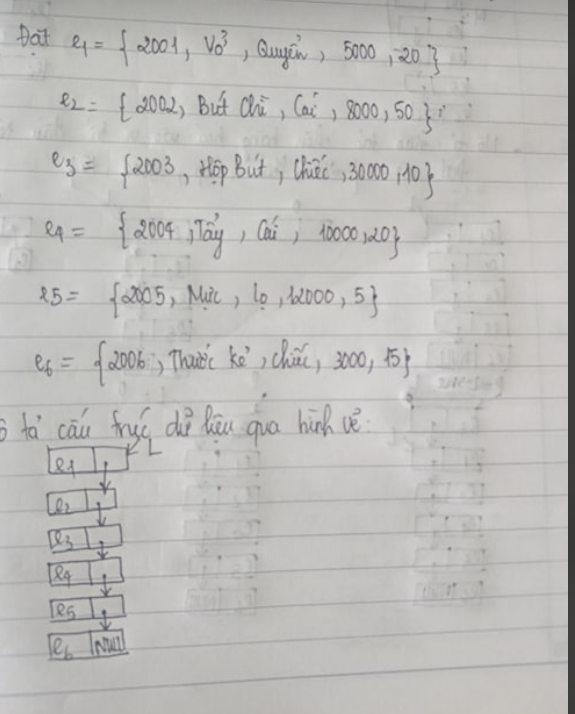 Đặt e1 = { 2001, Vở, Quyển, 5000, 20 }
e2 = { 2002, Bút Chì, Cái, 8000, 50 }
e3 = { 2003, Hộp Bút, Chiếc, 30000, 10 }
e4 = { 2004, Tẩy, Cái, 10000, 20 }
e5 = { 2005, Mực, lọ, 12000, 5 }
e6 = { 2006, Thước kẻ, chiếc, 3000, 15 }
ô tả cấu trúc dữ liệu qua hình vẽ:
L
e1
e2
e3
e4
e5
e6 Null